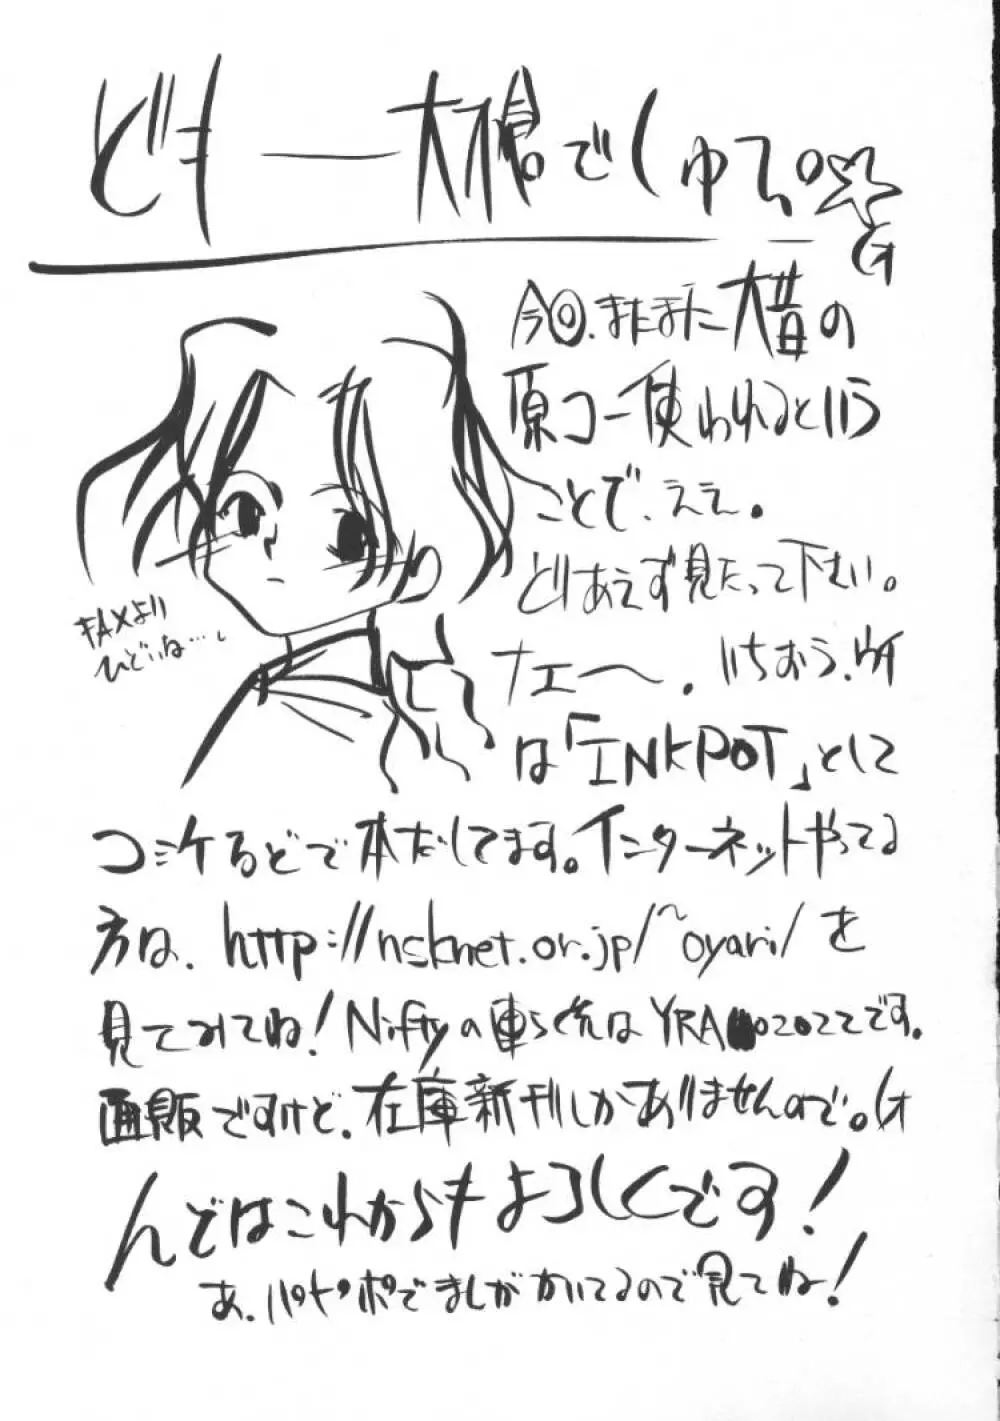 ども――大槍でしゅてい。☆
今回、またまた大昔の
原コー使われるという
ことで、ええ。
とりあえず見たって下さい。
FAXより
ひどいね…
ナエ～。いちおう、ウチ
は「INKPOT」として
コミケなどで本だしてます。インターネットやってる
方は、http://nsknet.or.jp/~oyari/を
見てみてね！Niftyの連らく先はYRA02022です。
通販ですけど、在庫新刊しかありませんので。
んではこれからもよろしくです！
あ、パトポポでましがかいてるので見てね！